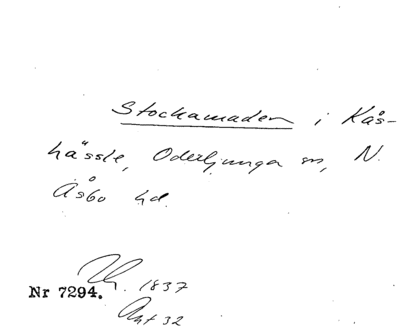 Stockamaden i Kås-
hässle, Oderljunga sn, N.
Åsbo hd.
1837
Nr 7294.
Akt 32